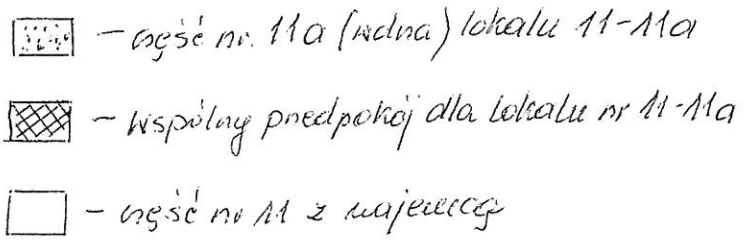 - część nr. 11a (wolna) lokalu 11-11a
- Wspólny przedpokój dla lokalu nr 11-11a
- część nr 11 z najemcą